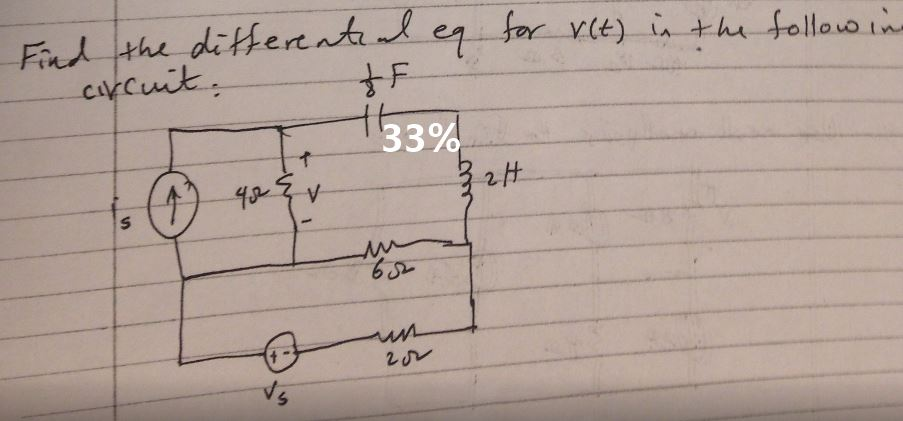 Find the differential eq for v(t) in the followin
circuit:
1/8 F
33%
+
4Ω
V
-
2H
is
6Ω
+ -
2Ω
Vs